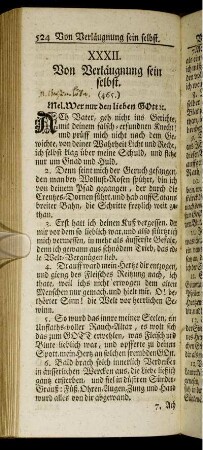 524 Von Verläugnung sein selbst.
XXXII.
Von Verläugnung sein
selbst.
(465.)
Mel. Wer nur den lieben GOtt ꝛc.
ACh Vater, geh nicht ins Gerichte,
mit deinem falsch-erfundnen Knecht;
und prüff mich nicht nach den Ge-
wichte, von deiner Wahrheit Licht und Recht,
ich selbst klag über meine Schuld, und flehe
nur um Gnad und Huld.
2. Denn seint mich der Geruch gefangen,
den manche Wollust-Rosen führt, bin ich
von deinem Pfad gegangen, der durch die
Creutzes-Dornen führt, und hab anstatt deiner
breiter Bahn, die Schritte freylich nicht zu
dir gethan.
3. Erst hatt ich deinen Kuß vergessen, der
mir vor dem so lieblich war, und also dürfft ich
mich vermessen, in mehr als äusserste Gefahr,
denn ich gewann aus schnödem Trieb, das eit-
le Welt-Vergnügen lieb.
4. Drauf ward mein Hertz dir entzogen,
und gieng des Fleisches Reitzung nach, ich
thate, weil ich nicht erwogen dem alten
Menschen nur zu gemach, und dacht: O! be-
thörter Sinn! die Welt vor herrlichen Ge-
winn.
5. So wurd das innre meiner Seelen, ein
Unflaths-voller Rauch-Altar, es wolt sich
das zum GOTT erwehlen, was Fleisch und
Blute lieblich war, und opfferte zu deinen
Spott, mein Hertz an solchen frembden GOtt.
6. Bald brach solch innerlich Verderben
in äusserlichen Wercken aus, die Liebe ließ ich
gantz ersterben, und fiel in düstren Sünden-
Grauß: Füß, Ohren, Augen, Zung und Hand
wurd alles von dir abgewand.
7. Ach